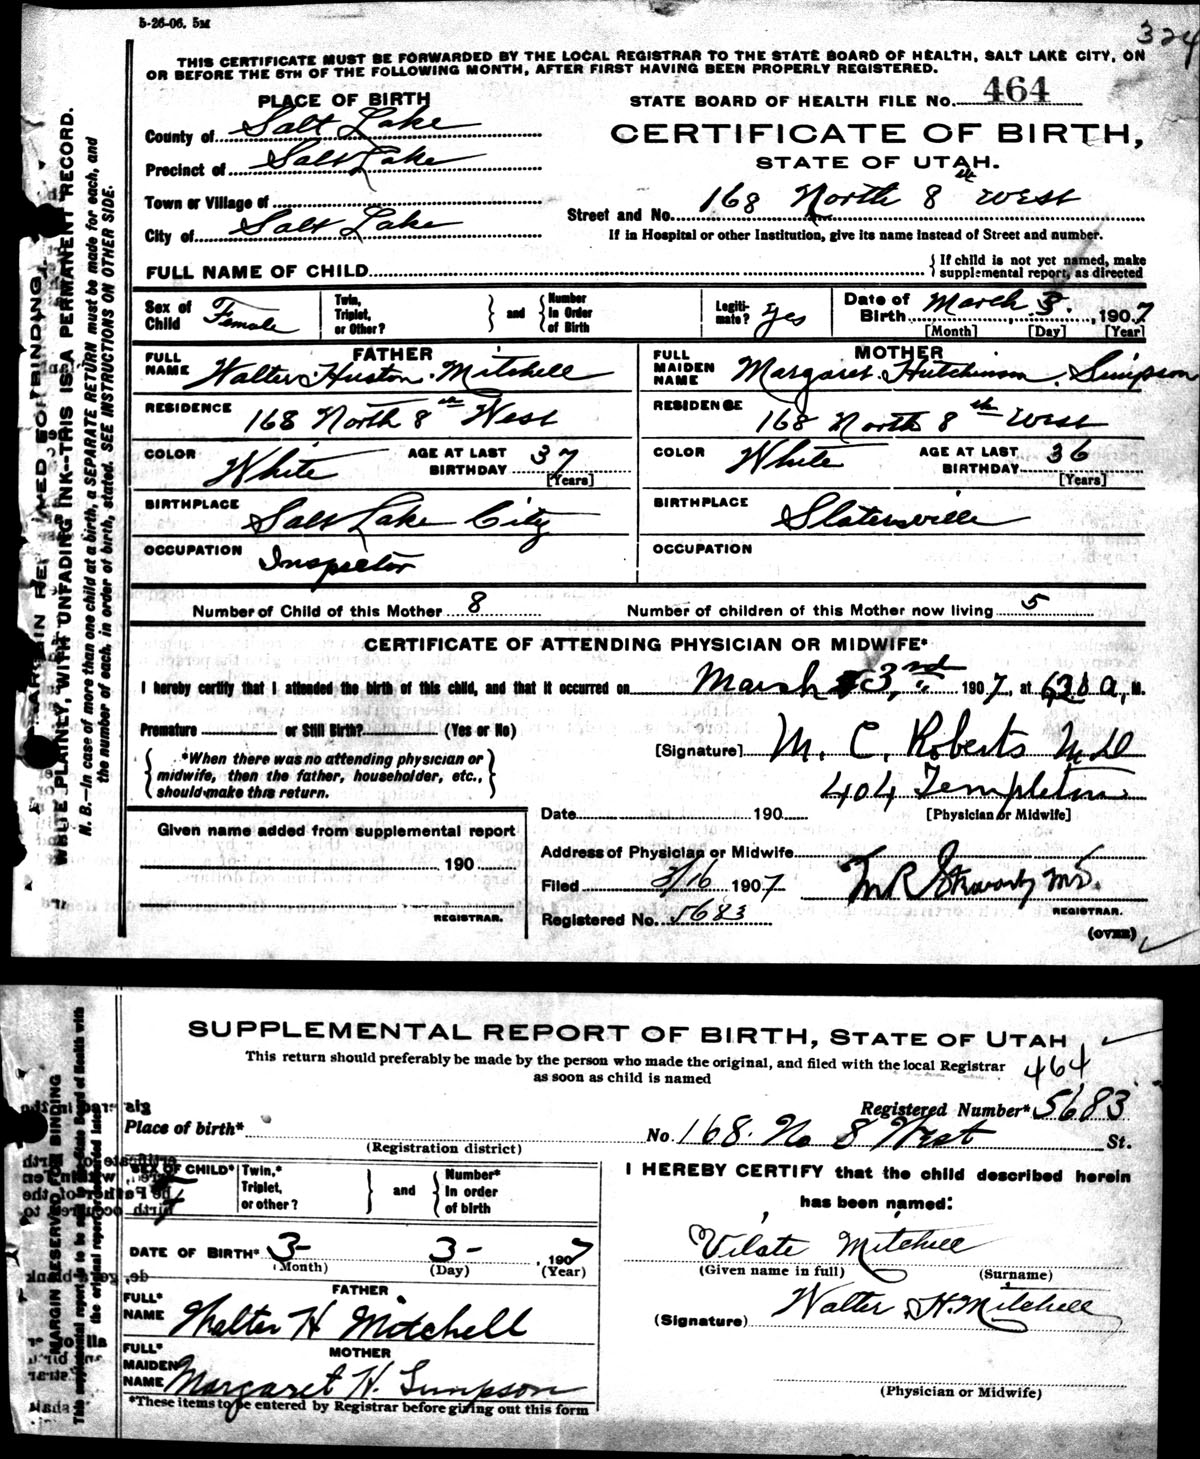 5-26-06. 5M
324
THIS CERTIFICATE MUST BE FORWARDED BY THE LOCAL REGISTRAR TO THE STATE BOARD OF HEALTH, SALT LAKE CITY, ON
OR BEFORE THE 5TH OF THE FOLLOWING MONTH, AFTER FIRST HAVING BEEN PROPERLY REGISTERED.
PLACE OF BIRTH
County of Salt Lake
Precinct of Salt Lake
Town or Village of
City of Salt Lake
STATE BOARD OF HEALTH FILE No. 464
CERTIFICATE OF BIRTH,
STATE OF UTAH.
Street and No. 168 North 8th West
If in Hospital or other Institution, give its name instead of Street and number.
FULL NAME OF CHILD
{ If child is not yet named, make
supplemental report, as directed
Sex of Child Female
Twin, Triplet, or Other? } and { Number In Order of Birth
Legiti-mate? Yes
Date of Birth March 3. , 1907
[Month] [Day] [Year]
FATHER
FULL NAME Walter Huston Mitchell
RESIDENCE 168 North 8th West
COLOR White AGE AT LAST BIRTHDAY 37
[Years]
BIRTHPLACE Salt Lake City
OCCUPATION Inspector
MOTHER
FULL MAIDEN NAME Margaret Hutchinson Simpson
RESIDENCE 168 North 8th West
COLOR White AGE AT LAST BIRTHDAY 36
[Years]
BIRTHPLACE Slatersville
OCCUPATION
Number of Child of this Mother 8 Number of children of this Mother now living 5
CERTIFICATE OF ATTENDING PHYSICIAN OR MIDWIFE*
I hereby certify that I attended the birth of this child, and that it occurred on March 3rd, 1907, at 638 a, M.
Premature or Still Birth? (Yes or No)
{ *When there was no attending physician or
midwife, then the father, householder, etc.,
should make this return. }
[Signature] M. C. Roberts M.D
404 Templeton
[Physician or Midwife]
Date 190
Given name added from supplemental report
190
REGISTRAR.
Address of Physician or Midwife
Filed 3/16 1907
Registered No. 5683
REGISTRAR.
(OVER)
WRITE PLAINLY, WITH UNFADING INK--THIS IS A PERMANENT RECORD.
N. B.—In case of more than one child at a birth, a SEPARATE RETURN must be made for each, and
the number of each, in order of birth, stated. SEE INSTRUCTIONS ON OTHER SIDE.
SUPPLEMENTAL REPORT OF BIRTH, STATE OF UTAH
This return should preferably be made by the person who made the original, and filed with the local Registrar
as soon as child is named
464
Registered Number* 5683
Place of birth* No. 168. No 8 West St.
(Registration district)
SEX OF CHILD* F
Twin,* Triplet, or other? } and { Number* In order of birth
DATE OF BIRTH* 3- 3- , 1907
(Month) (Day) (Year)
FATHER
FULL* NAME Walter H Mitchell
MOTHER
FULL* MAIDEN NAME Margaret H. Simpson
*These items to be entered by Registrar before giving out this form
I HEREBY CERTIFY that the child described herein
has been named:
Vilate Mitchell
(Given name in full) (Surname)
(Signature) Walter H. Mitchell
(Physician or Midwife)
MARGIN RESERVED FOR BINDING